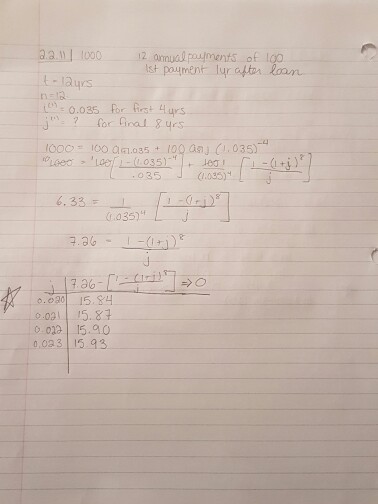 2.2.11 1000 12 annual payments of 100
1st payment 1yr after loan
t = 12 yrs
n = 12
i⁽¹⁾ = 0.035 for first 4 yrs
j⁽¹⁾ = ? for final 8 yrs
1000 = 100 a4|.035 + 100 a8|j (1.035)⁻⁴
10 1000 = 100 [1-(1.035)⁻⁴ / .035] + 100 1 / (1.035)⁴ [1-(1+j)⁸ / j]
6.33 = 1 / (1.035)⁴ [1-(1+j)⁸ / j]
7.26 = 1-(1+j)⁸ / j
j 7.26 - [1-(1+j)⁸ / j] ⇒ 0
0.020 15.84
0.021 15.87
0.022 15.90
0.023 15.93